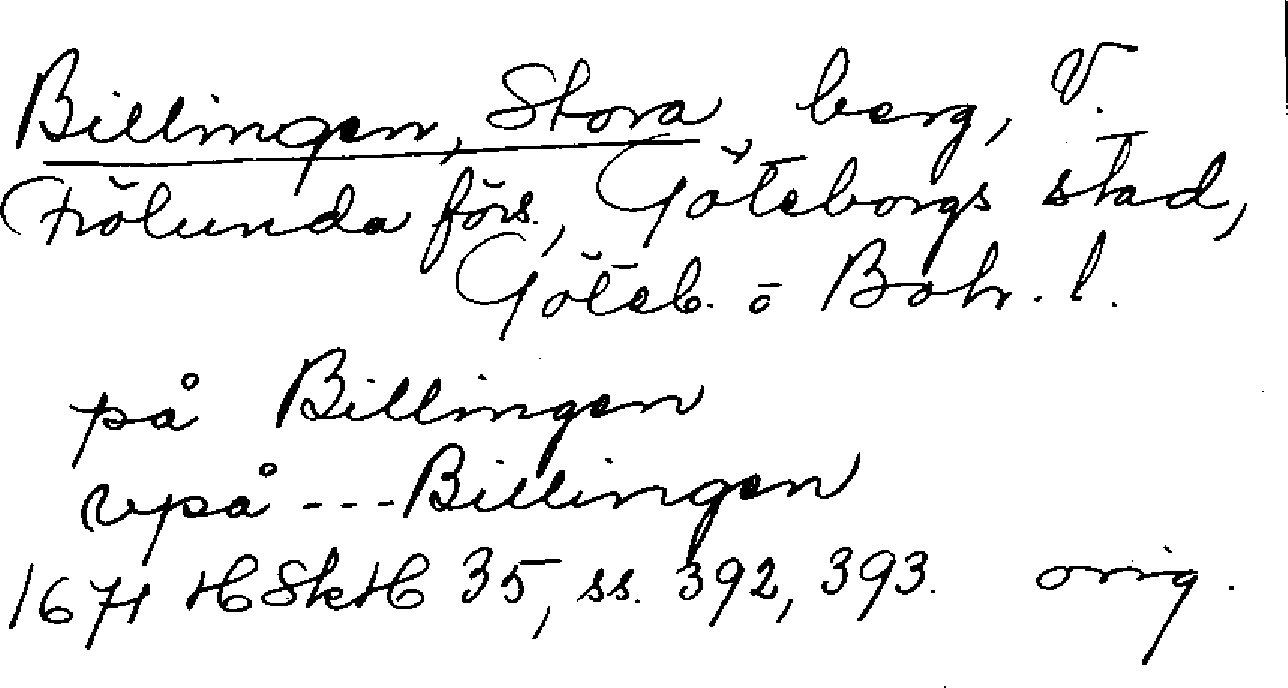 Billingen, Stora, berg, V.
Frölunda förs., Göteborgs stad,
Göteb. o Boh. l.
på Billingen
vpå --- Billingen
1671 HSkH 35, ss. 392, 393. orig.